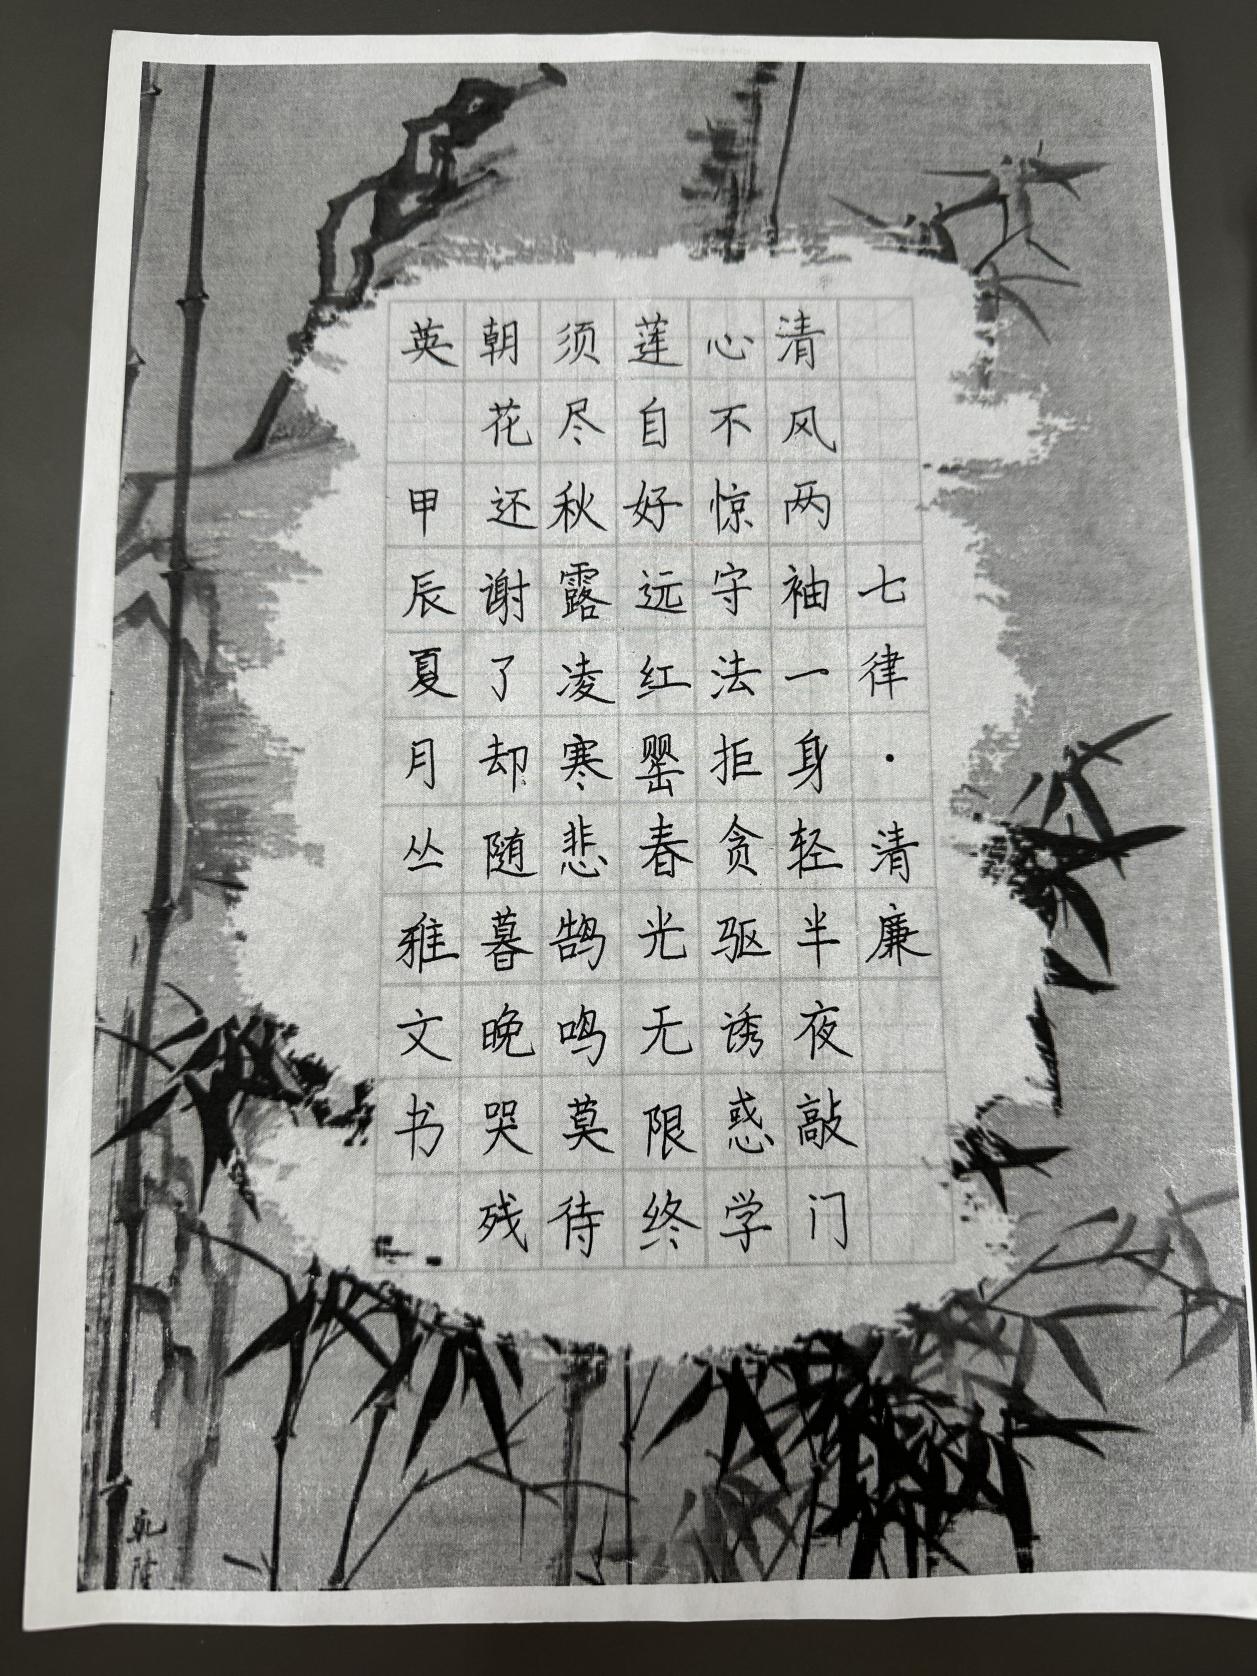 七律·清廉
清风两袖一身轻半夜敲门
心不惊守法拒贪驱诱惑学
莲自好远红罂春光无限终
须尽秋露凌寒悲鹄鸣莫待
朝花还谢了却随暮晚哭残
英
甲辰夏月丛雅文书